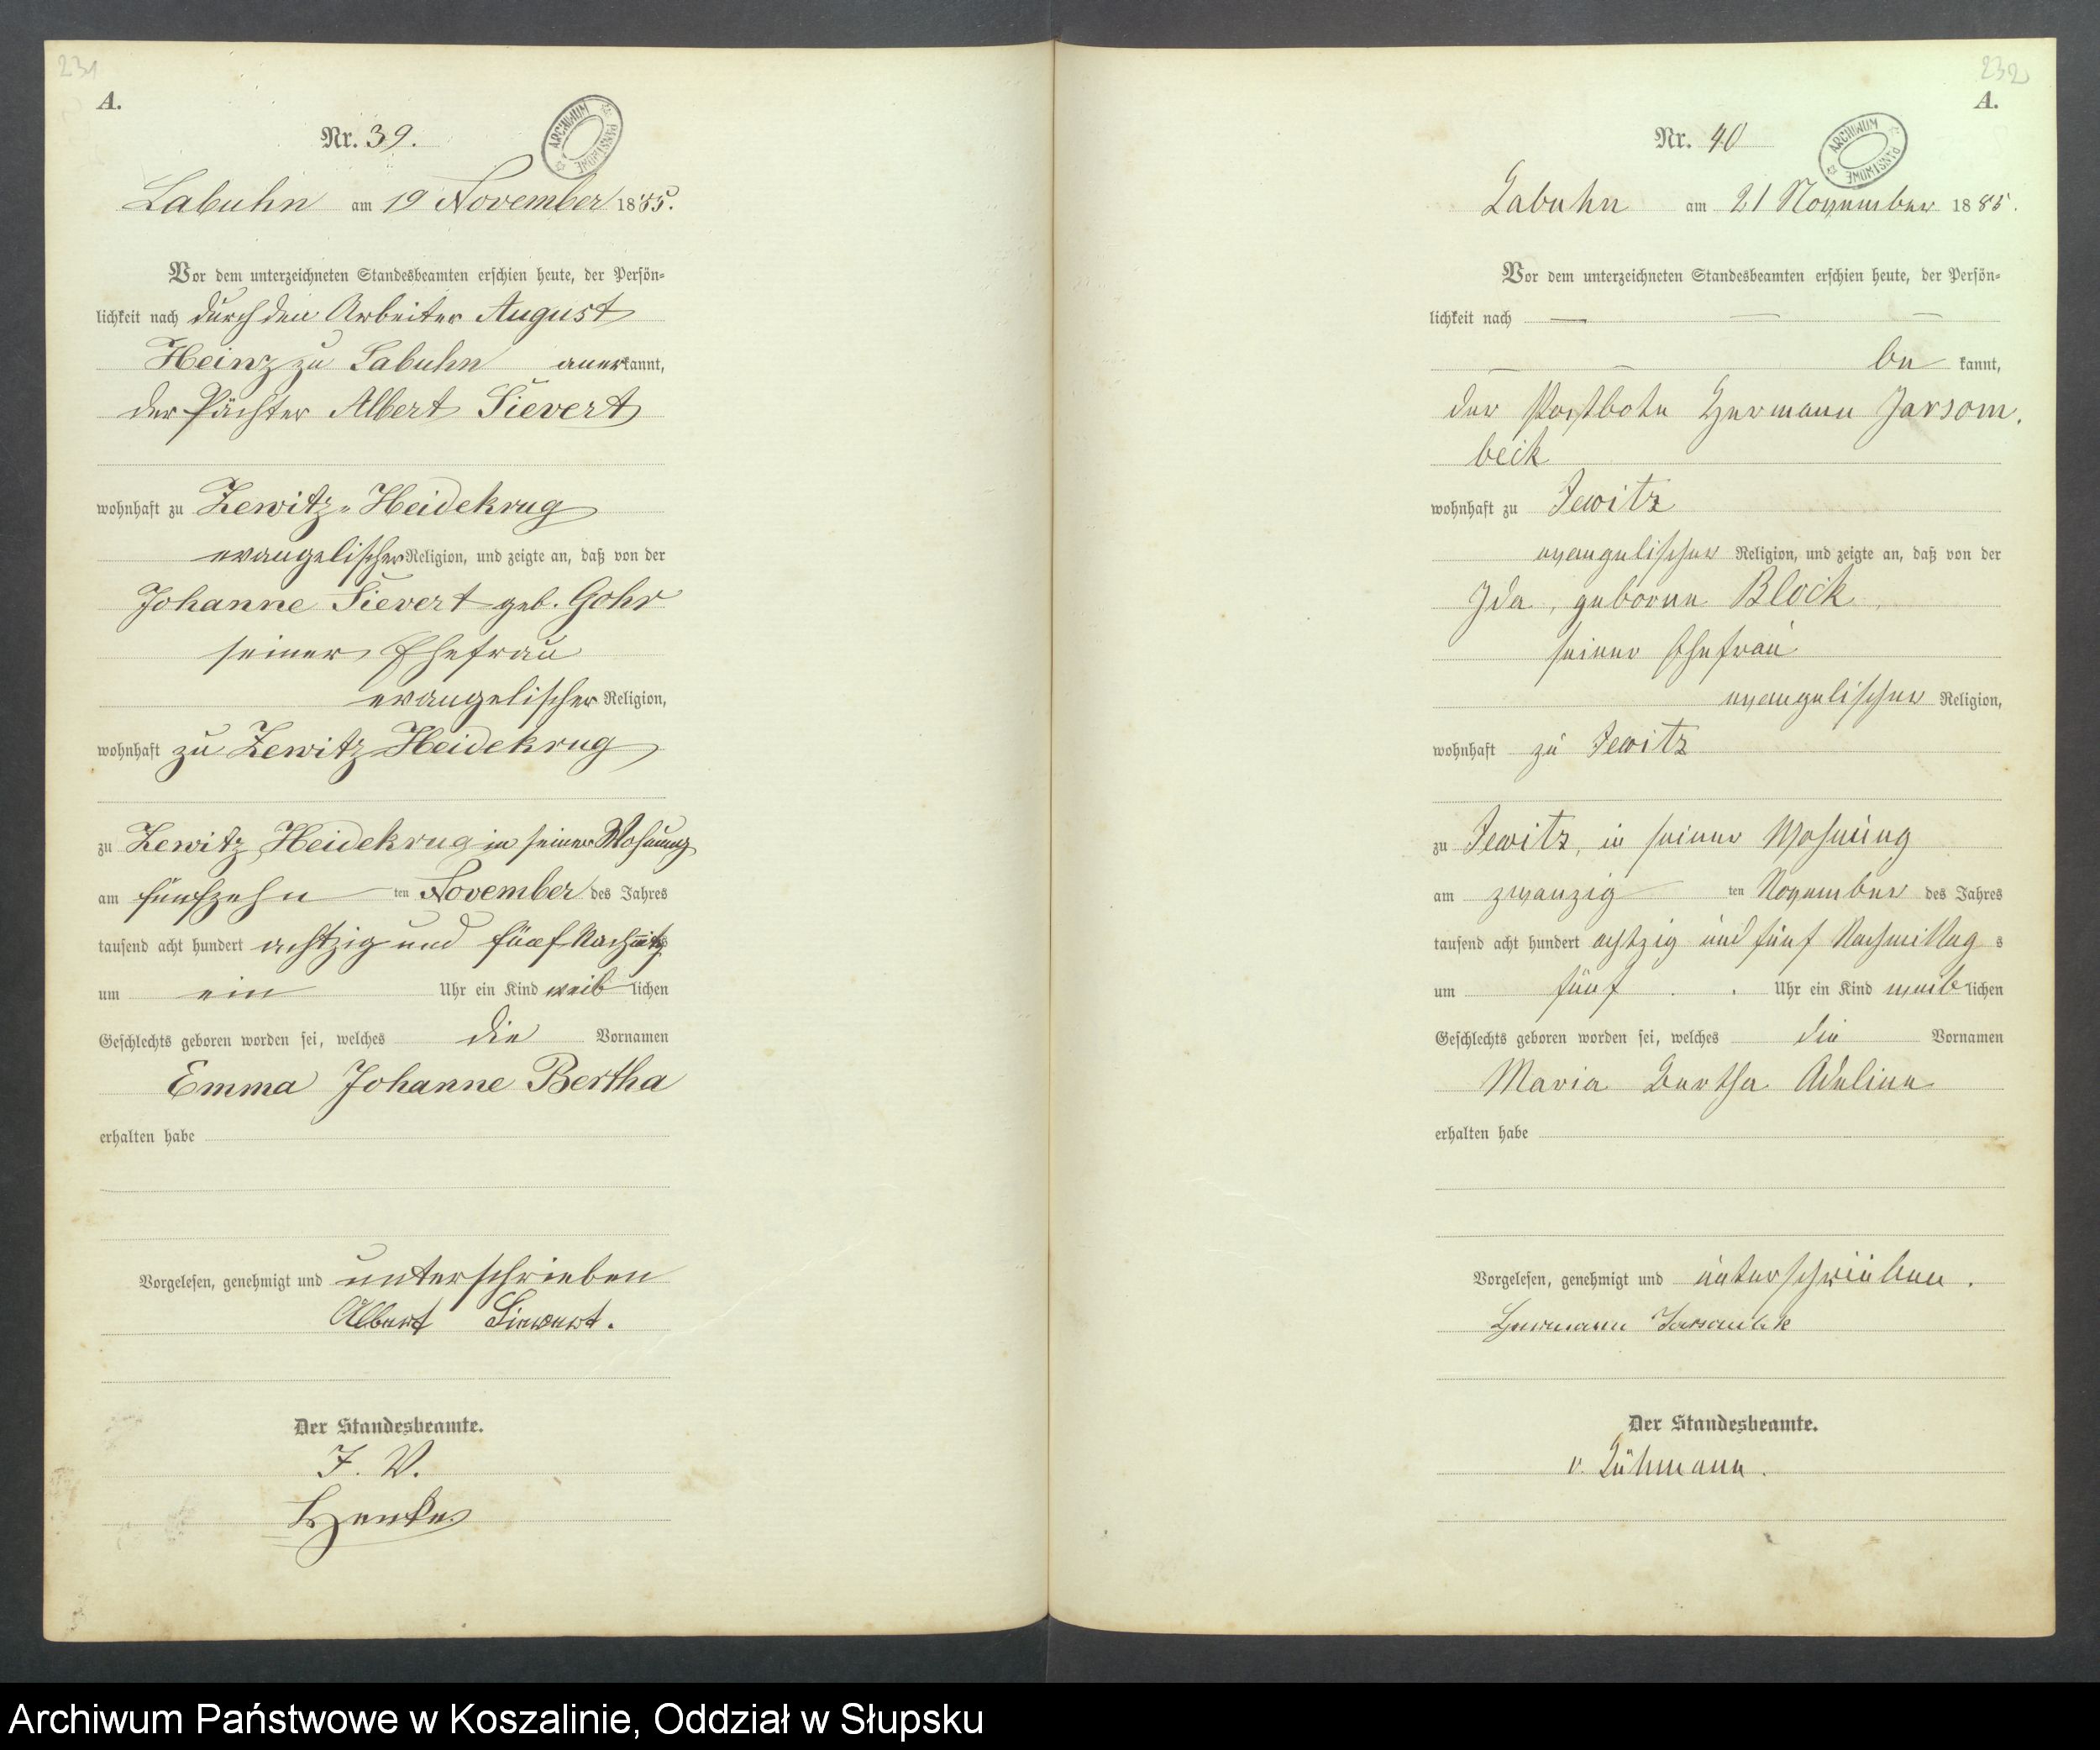 231
A.
Nr. 39.
ARCHIWUM PAŃSTWOWE
Labuhn am 19 November 1885.
Vor dem unterzeichneten Standesbeamten erschien heute, der Persön-
lichkeit nach durch den Arbeiter August
Heinz zu Labuhn anerkannt,
der Pächter Albert Sievert
wohnhaft zu Zewitz-Heidekrug
evangelischer Religion, und zeigte an, daß von der
Johanne Sievert geb. Gohr
seiner Ehefrau
evangelischer Religion,
wohnhaft zu Zewitz Heidekrug
zu Zewitz Heidekrug in seiner Wohnung
am fünfzehn ten November des Jahres
tausend acht hundert achtzig und fünf Nachmittags
um ein Uhr ein Kind weiblichen
Geschlechts geboren worden sei, welches die Vornamen
Emma Johanne Bertha
erhalten habe
Vorgelesen, genehmigt und unterschrieben
Albert Siewert.
Der Standesbeamte.
J. V.
Henke
232
A.
Nr. 40
ARCHIWUM PAŃSTWOWE
Labuhn am 21 November 1885.
Vor dem unterzeichneten Standesbeamten erschien heute, der Persön-
lichkeit nach
be kannt,
der Postbote Hermann Jarsom.
beck
wohnhaft zu Zewitz
evangelischer Religion, und zeigte an, daß von der
Ida, geborne Block,
seiner Ehefrau
evangelischer Religion,
wohnhaft zu Zewitz
zu Zewitz, in seiner Wohnung
am zwanzig ten November des Jahres
tausend acht hundert achtzig und fünf Nachmittag s
um fünf Uhr ein Kind weiblichen
Geschlechts geboren worden sei, welches die Vornamen
Maria Bertha Adeline
erhalten habe
Vorgelesen, genehmigt und unterschrieben.
Hermann
Der Standesbeamte.
v. Lühmann.
Archiwum Państwowe w Koszalinie, Oddział w Słupsku